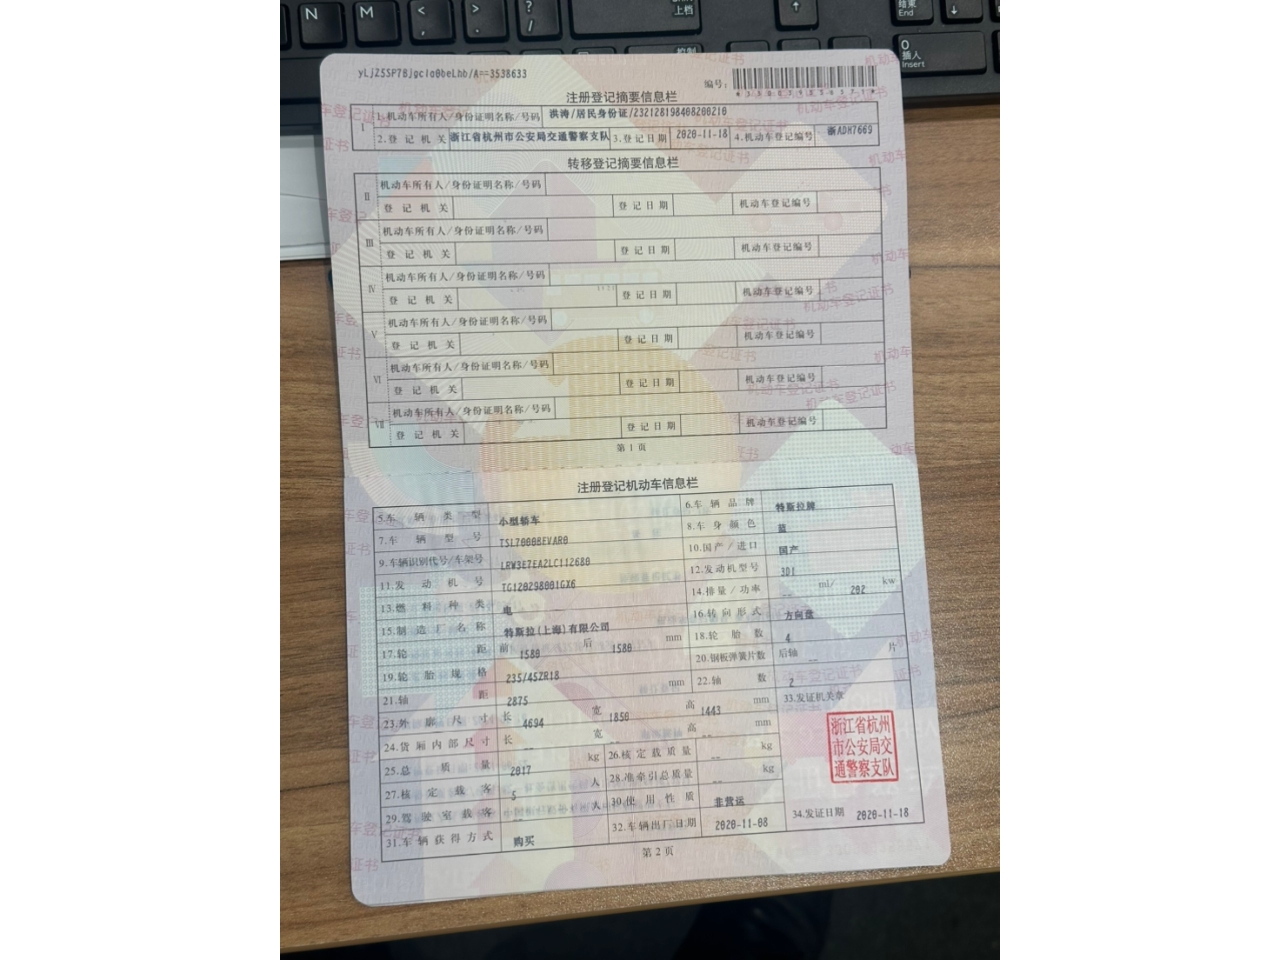 N
M
<
>
?
/
上档
↑
结束
End
↓
0
插入
Insert
yLjZ5SF7Bjgcla0beLhb/A==3538633
编号:
注册登记摘要信息栏
I
1.机动车所有人/身份证明名称/号码 洪涛/居民身份证/232128198408200210
2.登记机关 浙江省杭州市公安局交通警察支队 3.登记日期 2020-11-18 4.机动车登记编号 浙ADH7669
转移登记摘要信息栏
II
机动车所有人/身份证明名称/号码
登记机关 登记日期 机动车登记编号
III
机动车所有人/身份证明名称/号码
登记机关 登记日期 机动车登记编号
IV
机动车所有人/身份证明名称/号码
登记机关 登记日期 机动车登记编号
V
机动车所有人/身份证明名称/号码
登记机关 登记日期 机动车登记编号
VI
机动车所有人/身份证明名称/号码
登记机关 登记日期 机动车登记编号
VII
机动车所有人/身份证明名称/号码
登记机关 登记日期 机动车登记编号
第1页
注册登记机动车信息栏
5.车辆类型 小型轿车 6.车辆品牌 特斯拉牌
7.车辆型号 TSL7000BEVAR0 8.车身颜色 蓝
9.车辆识别代号/车架号 LRW3E7EA2LC112680 10.国产/进口 国产
11.发动机号 TG120298001GX6 12.发动机型号 3D1
13.燃料种类 电 14.排量/功率 -- ml/ 202 kw
15.制造厂名称 特斯拉(上海)有限公司 16.转向形式 方向盘
17.轮距 前 1580 后 1580 mm 18.轮胎数 4
19.轮胎规格 235/45ZR18 20.钢板弹簧片数 后轴 -- 片
21.轴距 2875 mm 22.轴数 2
23.外廓尺寸 长 4694 宽 1850 高 1443 mm 33.发证机关章
24.货厢内部尺寸 长 -- 宽 -- 高 -- mm
25.总质量 2017 kg 26.核定载质量 -- kg
27.核定载客 5 人 28.准牵引总质量 -- kg
29.驾驶室载客 -- 人 30.使用性质 非营运
31.车辆获得方式 购买 32.车辆出厂日期 2020-11-08 34.发证日期 2020-11-18
浙江省杭州
市公安局交
通警察支队
第2页